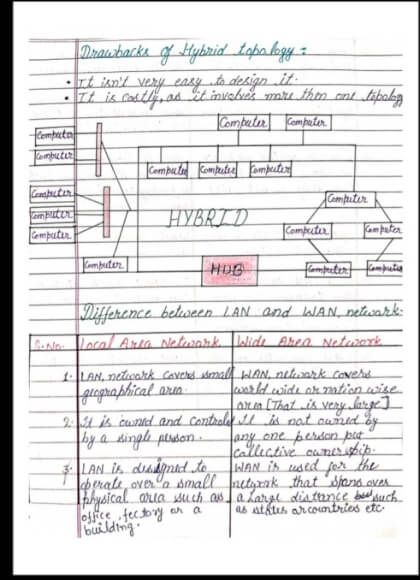 Drawbacks of Hybrid topology :
• It isn't very easy to design it.
• It is costly, as it involves more then one topology
Computer Computer
Computer
Computer
Computer Computer Computer
Computer
Computer
Computer
Computer
HYBRID
Computer Computer
Computer
HUB
Computer Computer
Difference between LAN and WAN, network:
S.No. Local Area Network Wide Area Network
1. LAN, network covers small WAN, network covers
geographical area. world wide or nation wise
area [That is very large]
2. It is owned and controls It is not owned by
by a single person. any one person put
collective ownership.
3. LAN is designed to WAN is used for the
operate over a small network that spans over
physical area such as a large distance such
office, fectory or a as states or countries etc.
building.